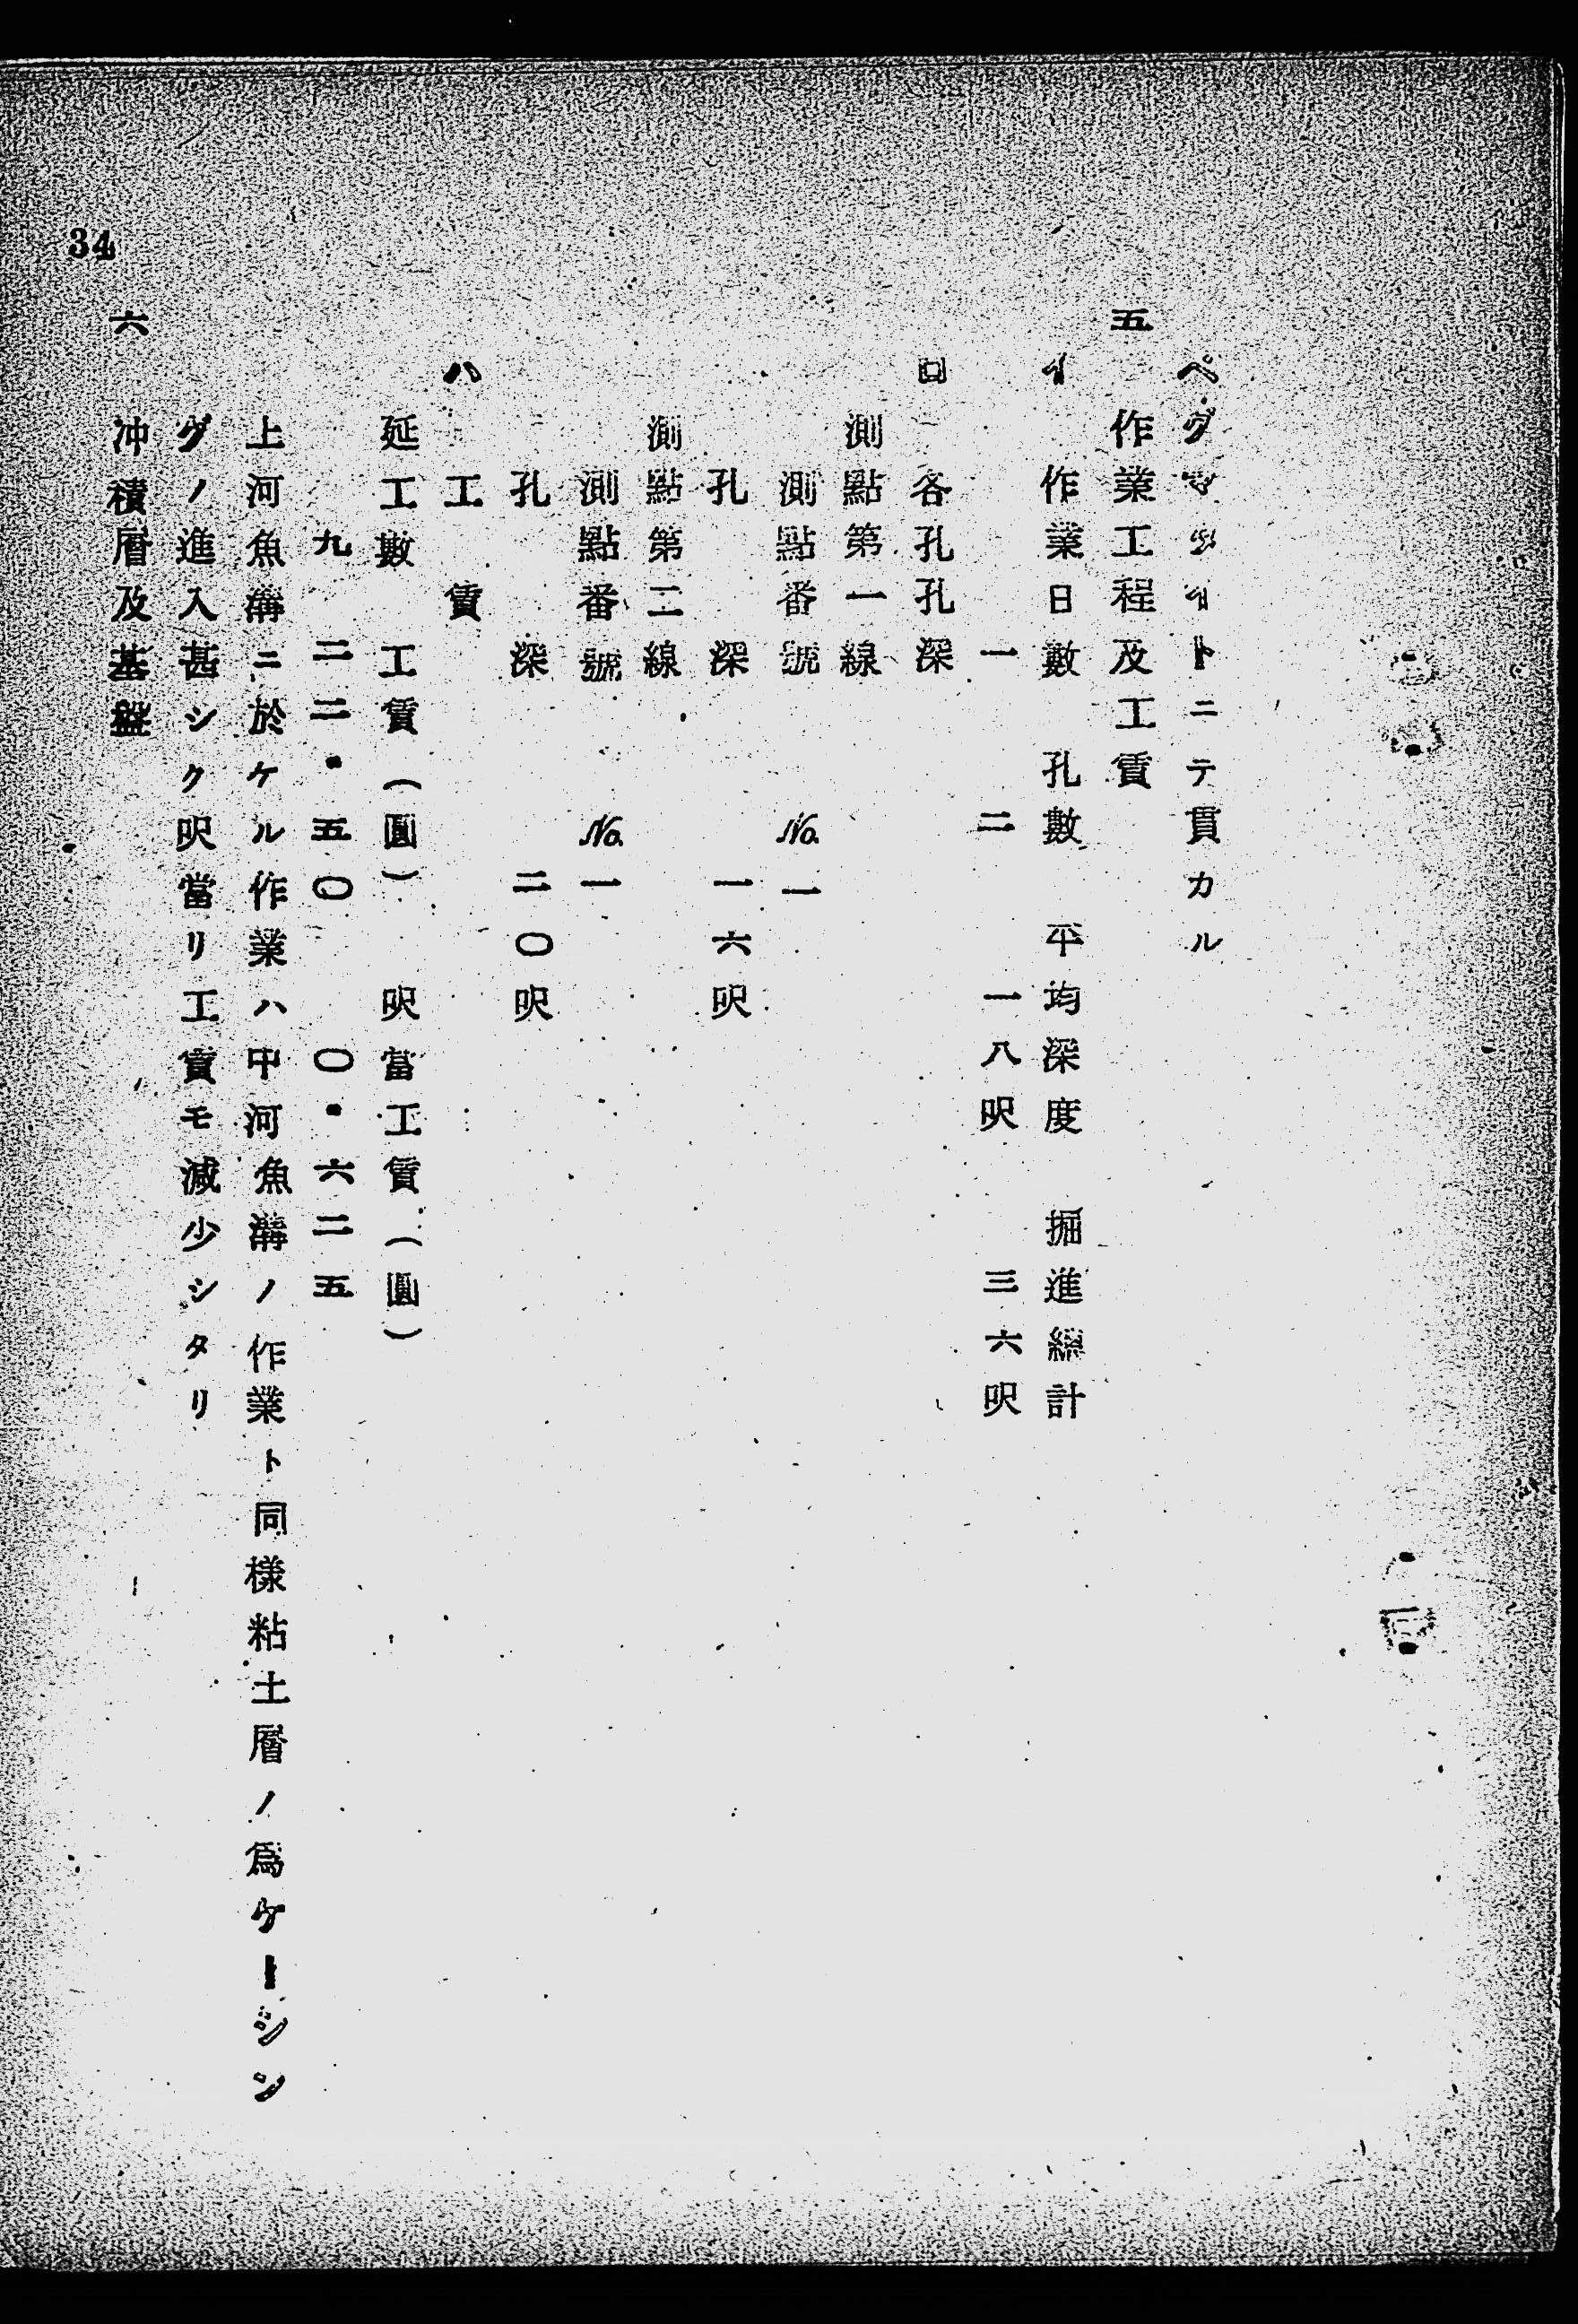 ペグマタイトニテ貫カル
五 作業工程及工賃
イ 作業日數 孔數 平均深度 掘進總計
一 二 一八呎 三六呎
ロ 各孔孔深
測點第一線
測點番號 No.一
孔深 一六呎
測點第二線
測點番號 No.一
孔深 二〇呎
ハ 工賃
延工數 工賃(圓) 呎當工賃(圓)
九 二二・五〇 〇・六二五
上河魚溝ニ於ケル作業ハ甲河魚溝ノ作業ト同様粘土層ノ爲ケーシン
グノ進入甚シク呎當リ工賃モ減少シタリ
六 冲積層及基盤
34